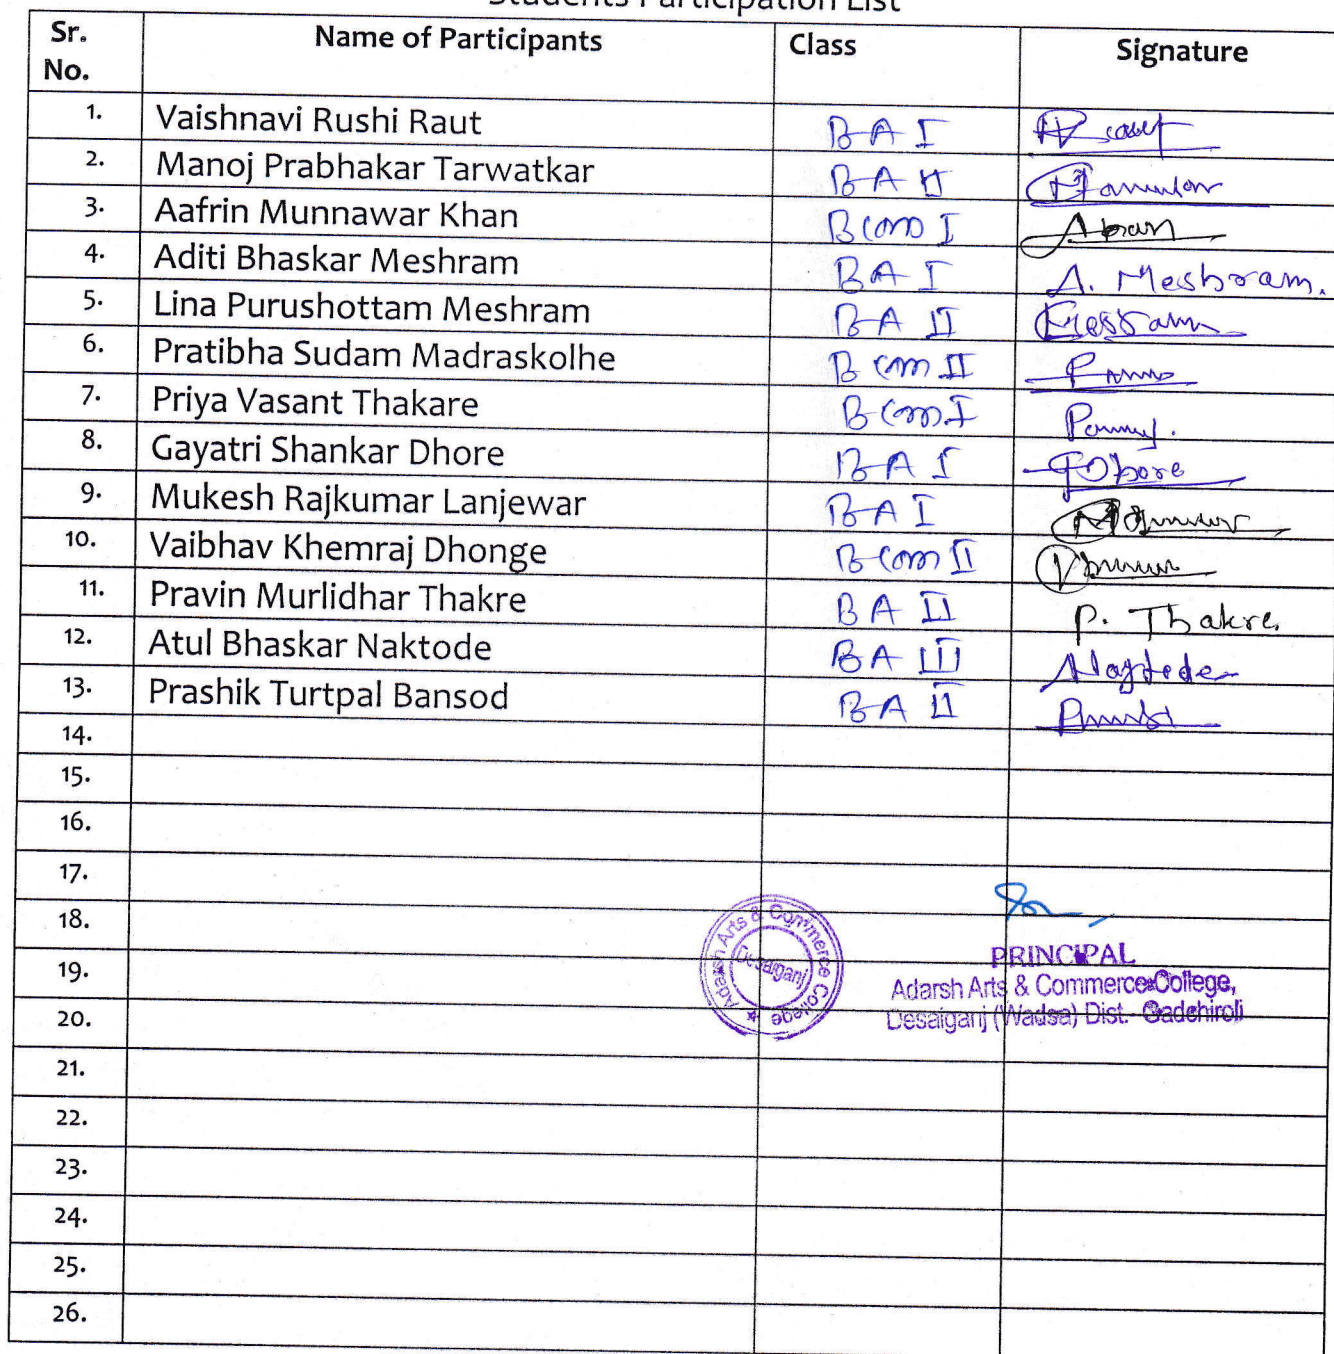 Students Participation List
Sr. No. Name of Participants Class Signature
1. Vaishnavi Rushi Raut B A I
2. Manoj Prabhakar Tarwatkar B A II
3. Aafrin Munnawar Khan B Com I
4. Aditi Bhaskar Meshram B A I A. Meshram.
5. Lina Purushottam Meshram B A II
6. Pratibha Sudam Madraskolhe B Com II
7. Priya Vasant Thakare B Com I
8. Gayatri Shankar Dhore B A I GDhore
9. Mukesh Rajkumar Lanjewar B A I
10. Vaibhav Khemraj Dhonge B Com II
11. Pravin Murlidhar Thakre B A II P. Thakre.
12. Atul Bhaskar Naktode B A III
13. Prashik Turtpal Bansod B A II
14.
15.
16.
17.
18.
19.
20.
21.
22.
23.
24.
25.
26.
Adarsh Arts & Commerce College
Desaiganj
PRINCIPAL
Adarsh Arts & Commerce College,
Desaiganj (Wadsa) Dist.- Gadchiroli